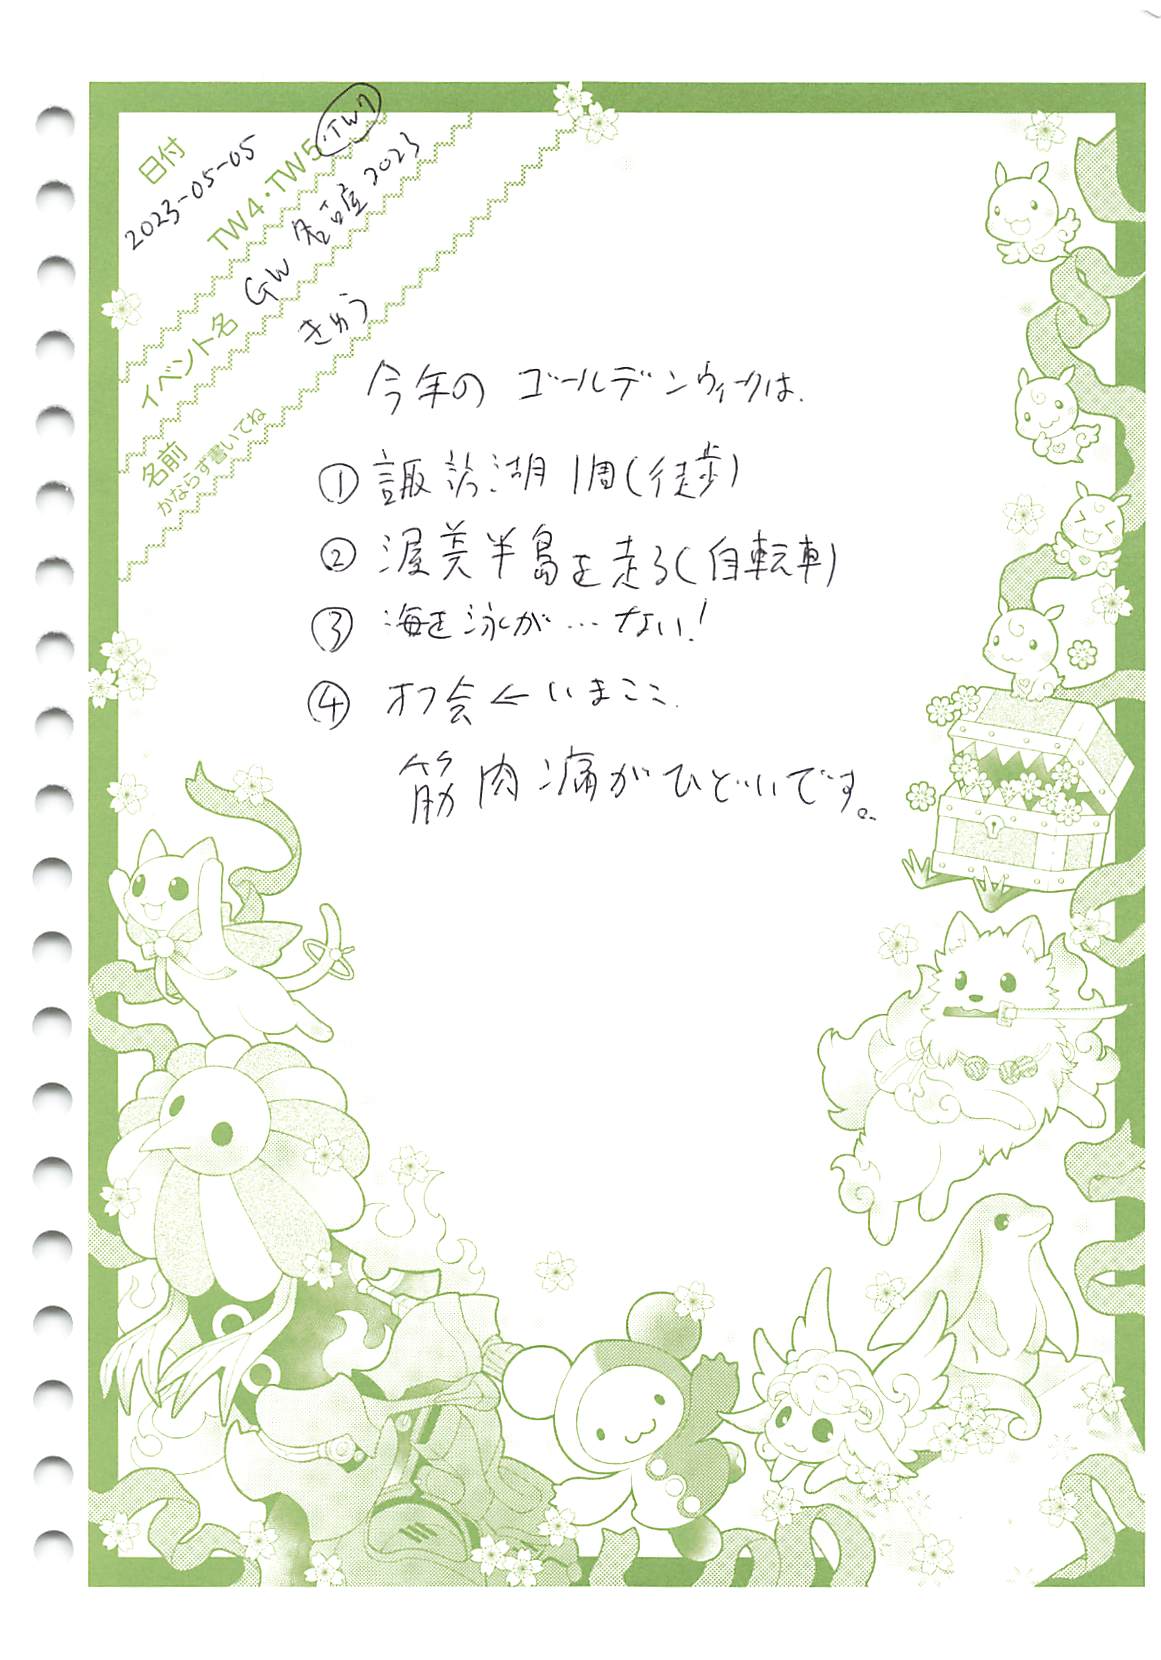 日付
2023-05-05
TW4・TW5・TW7
イベント名
GW 名古屋 2023
名前
かならず書いてね
きゅう
今年の ゴールデンウィークは、
① 諏訪湖1周(徒歩)
② 渥美半島を走る(自転車)
③ 海を泳が…ない!
④ オフ会←いまここ.
筋肉痛がひどいです。